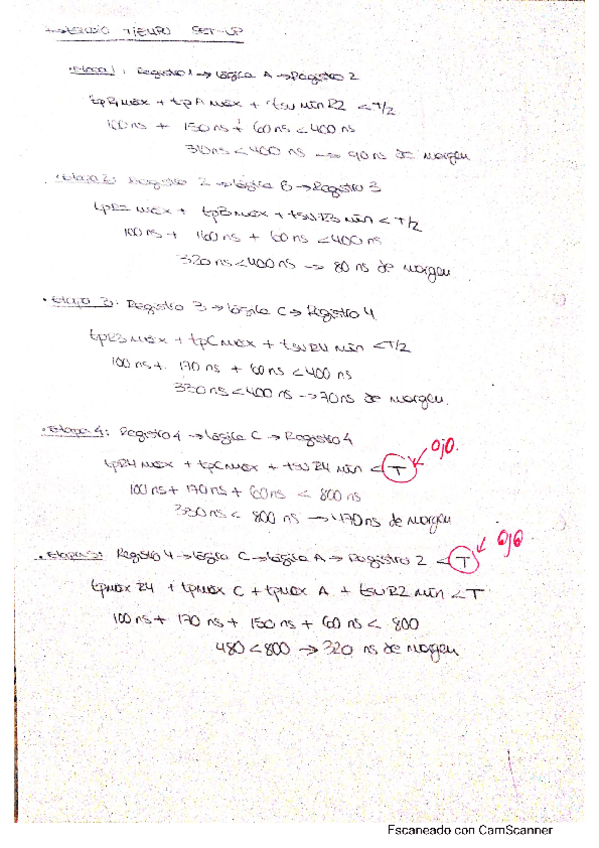 ESTUDIO TIEMPO SET-UP
·Etapa 1: Registro 1 → lógica A → Registro 2
tpR1 max + tpA max + tsu min R2 < T/2
100 ns + 150 ns + 60 ns < 400 ns
310 ns < 400 ns → 90 ns de margen
·Etapa 2: Registro 2 → lógica B → Registro 3
tpR2 max + tpB max + tsuR3 min < T/2
100 ns + 160 ns + 60 ns < 400 ns
320 ns < 400 ns → 80 ns de margen
·Etapa 3: Registro 3 → lógica C → Registro 4
tpR3 max + tpC max + tsuR4 min < T/2
100 ns + 170 ns + 60 ns < 400 ns
330 ns < 400 ns → 70 ns de margen.
·Etapa 4: Registro 4 → lógica C → Registro 4
ojo.
tpR4 max + tpC max + tsu R4 min < T
100 ns + 170 ns + 60 ns < 800 ns
330 ns < 800 ns → 470 ns de margen
ojo.
·Etapa 5: Registro 4 → lógica C → lógica A → Registro 2 < T
tpmax R4 + tpmax C + tpmax A + tsu R2 min < T
100 ns + 170 ns + 150 ns + 60 ns < 800
480 < 800 → 320 ns de margen
Escaneado con CamScanner